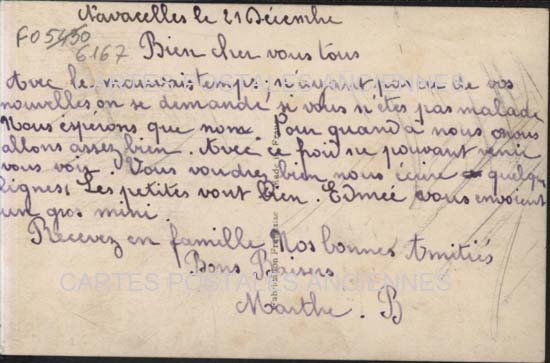 Navacelles le 21 Décembre
FO 5450
6167
Bien cher vous tous
Avec le mauvais temps n'ayant pas eu de vos
nouvelles on se demande si vous n'êtes pas malade
Nous espérons que non. Pour quand à nous nous
allons assez bien. Avec ce froid ne pouvant venir
vous voir. Vous voudrez bien nous écrire quelques
lignes. Les petites vont bien. Edmée vous envoient
un gros mimi.
Recevez en famille Nos bonnes Amitiés
Bons Baisers
Marthe. B
Fabrication Française
CARTES POSTALES ANCIENNES
CARTES POSTALES ANCIENNES